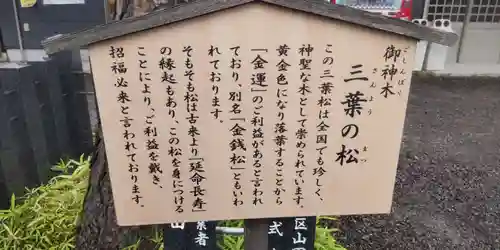 御神木
ごしんぼく
三葉の松
さんよう
まつ
この三葉松は全国でも珍しく、
神聖な木として崇められています。
黄金色になり落葉することから
「金運」のご利益があると言われ
ており、別名「金銭松」ともいわ
れております。
そもそも松は古来より「延命長寿」
の縁起もあり、この松を身につける
ことにより、ご利益を戴き、
招福必来と言われております。
区山
式
業者
山